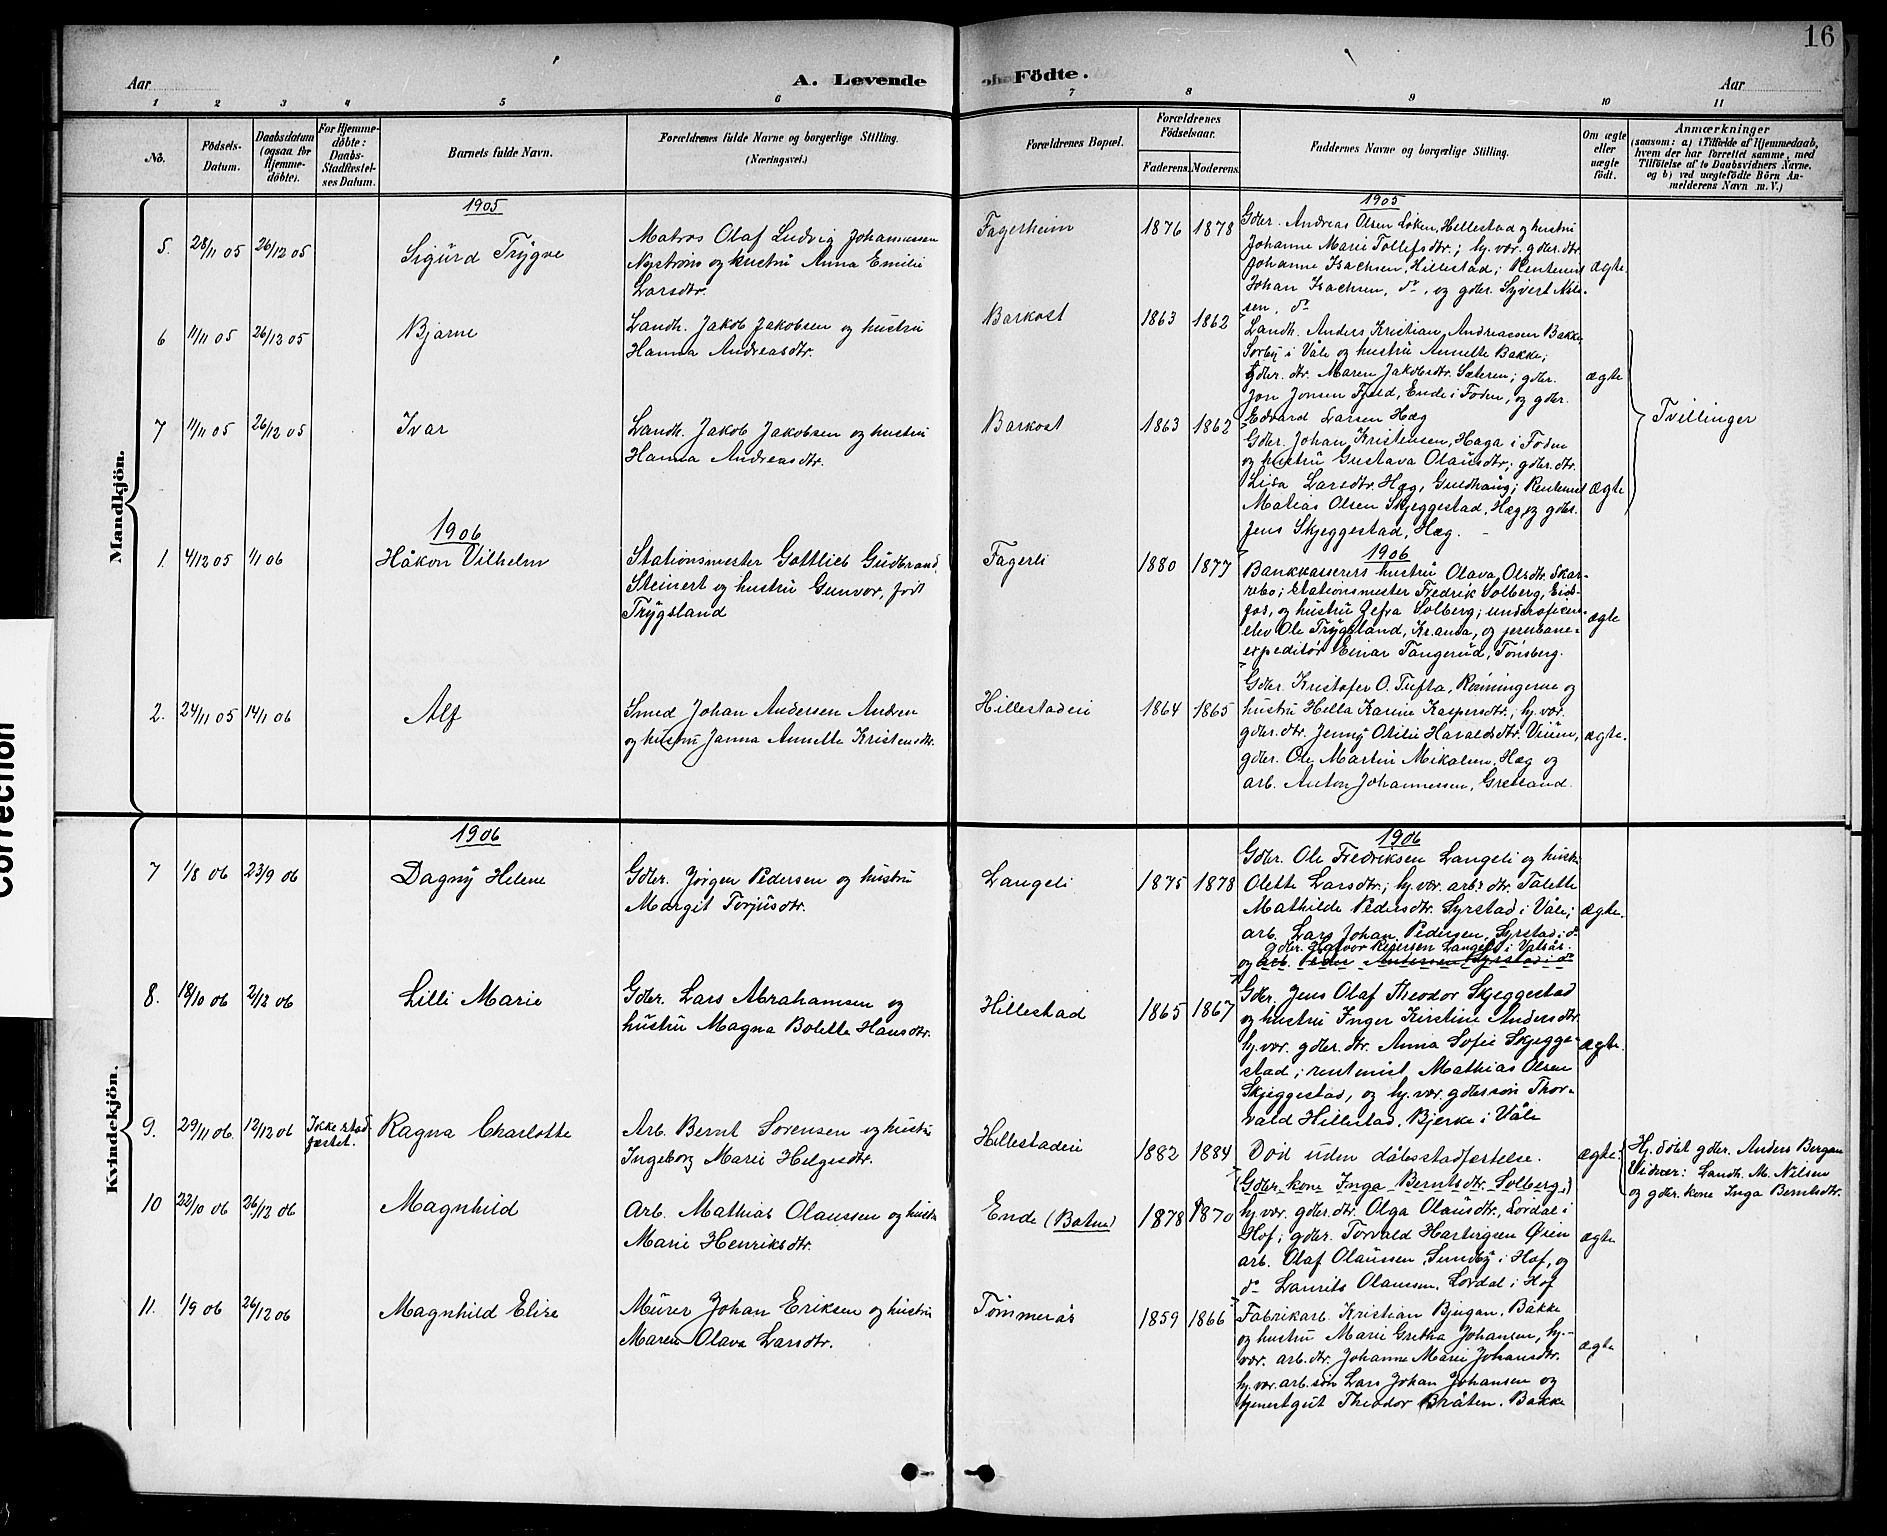 16
Aar
A. Levende
Födte.
Aar
1 2 3 4 5 6 7 8 9 10 11
No.
Födsels-
Datum.
Daabsdatum
(ogsaa for
Hjemme-
döbte).
For Hjemme-
döbte:
Daabs-
Stadfæstel-
ses Datum.
Barnets fulde Navn.
Forældrenes fulde Navne og borgerlige Stilling.
(Næringsvei.)
Forældrenes Bopæl.
Forældrenes
Födselsaar.
Faderens. Moderens.
Faddernes Navne og borgerlige Stilling.
Om ægte
eller
uægte
födt.
Anmærkninger
(saasom: a) i Tilfælde af Hjemmedaab,
hvem der har forrettet samme, med
Tilföielse af to Daabsvidners Navne,
og b) ved uægtefödte Börn An-
melderens Navn m. V.)
Mandkjön.
1905
5. 28/11 05 26/12 05 Sigurd Trygve
Matros Olaf Ludvig Johannessen
Nystrøm og hustru Anna Emilie
Larsdtr.
Fagerheim 1876 1878
1905
Gdbr. Andreas Olsen Løken, Hillestad og hustru
Johanne Marie Tollefsdtr.; hj. vær. gdbr. dtr.
Johanne Isachsen, Hillestad; Rentenist
Johan Isachsen, do, og gdbr. Syvert Niel-
sen, do
ægte.
6 11/11 05 26/12 05 Bjarne
Landh. Jakob Jakobsen og hustru
Hanna Andreasdtr.
Barkost 1863 1862
Landh. Anders Kristian Andreassen Bakke,
Sørby i Våle og hustru Annette Bakke;
gdbr. dtr. Maren Jakobsdtr. Sæteren; gdbr.
Jon Jonsen Fjeld, Ende i Foden, og gdbr.
Edvard Larsen Hæg
ægte
7 11/11 05 26/12 05 Ivar
Landh. Jakob Jakobsen og hustru
Hanna Andreasdtr.
Barkost 1863 1862
Gdbr. Johan Kristensen, Haga i Foden
og hustru Gustava Olausdtr; gdbr. dtr.
Lisa Larsdtr. Hæg, Gundhaug; Rentenist
Matias Olsen Skjeggestad, Hæg og gdbr.
Jens Skjeggestad, Hæg.
ægte
Tvillinger
1906
1. 4/12 05 1/1 06 Håkon Vilhelm
Stationsmester Gottlieb Gudbrand
Steinert og hustru Gunvor, født
Trygsland
Fagerli 1880 1877
1906
Bankkasserers hustru Olava Olsdtr. Skar-
rebo; stationsmester Fredrik Solberg, Eids-
fos, og hustru Zefra Solberg; underoficers-
elev Ole Trygsland, Kr.ansa, og jernbane-
expeditør Einar Tangerud, Tønsberg.
ægte
2. 24/11 05 14/1 06 Alf
Smed Johan Andersen Andren
og hustru Janna Annette Kristensdtr.
Hillestadeie 1864 1865
Gdbr. Kristofer O. Tufta, Rønningerne og
hustru Hella Karine Kaspersdtr, hj. vær.
gdbr. dtr. Jenny Otilie Haraldsdtr. Vium,
gdbr. Ole Martin Mikalsen, Hæg og
arb. Anton Johannessen, Gretland
ægte.
Kvindekjön.
1906
7 1/8 06 23/9 06 Dagny Helene
Gdbr. Jørgen Pedersen og hustru
Margit Torjusdtr.
Langeli 1875 1878
1906
Gdbr. Ole Fredriksen Langeli og hustru
Olette Larsdtr; hj. vær. arb's dtr. Talette
Mathilde Pedersdtr. Syrstad i Våle;
arb. Lars Johan Pedersen, Syrstad i do
gdbr. Halvor Pedersen Langeli i Valsås.
og arb. Peder Andersen Syrstad i do
ægte.
8. 18/10 06 2/12 06 Lilli Marie
Gdbr. Lars Abrahamsen og
hustru Magna Bolette Hansdtr.
Hillestad 1865 1867
Gdbr. Jens Olaf Theodor Skjeggestad
og hustru Inger Kirstine Andersdtr.
hj. vær. gdbr. dtr. Anna Sofie Skjegge-
stad; rentenist Mathias Olsen
Skjeggestad, og hj. vær. gdbr søn Thor-
vald Hillestad, Bjerke i Våle
ægte.
9. 29/11 06. 12/12 06 Ikke stad-
fæstet. Ragna Charlotte
Arb. Bernt Sørensen og hustru
Ingeborg Marie Helgesdtr.
Hillestadeie 1882 1884
Død uden dåbsstadfæstelse.
(Gdbr. kone Inga Berntsdtr. Solberg.)
ægte.
Hj. døbt gdbr. Anders Bergan
Vidner: Landh. M. Nilsen
og gdbr. kone Inga Berntsdtr.
10 22/10 06 26/12 06 Magnhild
Arb. Mathias Olaussen og hustru
Marie Henriksdtr.
Ende (Botne) 1878 1870
hj. vær. gdbr. dtr. Olga Olausdtr., Lørdal i
Hof; gdbr. Torvald Hartvigsen Øien
arb. Olaf Olaussen, Sundby i Hof, og
do Laurits Olaussen, Lørdal i Hof
ægte
11. 1/9 06 26/12 06 Magnhild Elise
Murer Johan Eriksen og hustru
Maren Olava Larsdtr.
Tømmerås 1859 1866
Fabrikarb. Kristian Bjugan, Bakke
og hustru Marie Gretha Johansen, hj.-
vær. arb. dtr. Johanne Marie Johansdtr.
hj. vær. arb. søn Lars Johan Johansen og
tjenestgut Theodor Bråten, Bakke
ægte
Correction